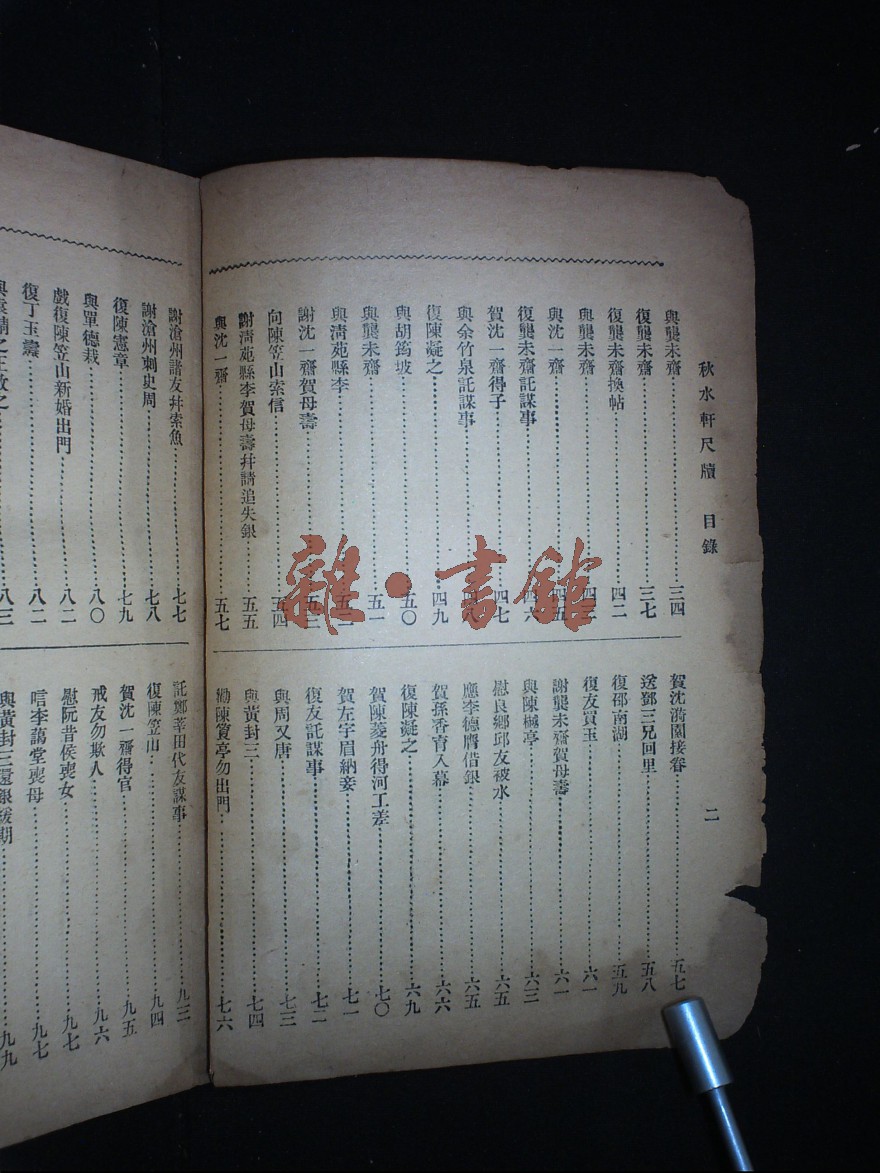 秋水軒尺牘 目錄 二
與龔未齋 三四
復龔未齋 三七
復龔未齋換帖 四二
與龔未齋
與沈一齋 四五
復龔未齋託謀事 四六
賀沈一齋得子 四七
與余竹泉託謀事 四八
復陳凝之 四九
與胡筠坡 五〇
與龔未齋 五一
與清苑縣李 五二
謝沈一齋賀母壽 五三
向陳笠山索信 五四
謝清苑縣李賀母壽幷請追失銀 五五
與沈一齋 五七
賀沈漪園接眷 五七
送鄧三兄回里 五八
復邵南湖 五九
復友買玉 六一
謝龔未齋賀母壽 六一
與陳樾亭 六三
慰良鄉邱友被水 六五
應李德膺借銀 六五
賀孫香育入幕 六六
復陳凝之 六九
賀陳菱舟得河工差 七〇
賀左宇眉納妾 七一
復友託謀事 七二
與周又唐 七三
與黃封三 七四
勸陳篔亭勿出門 七六
謝滄州諸友幷索魚 七七
謝滄州刺史周 七八
復陳憲章 七九
與單德栽 八〇
戲復陳笠山新婚出門 八二
復丁玉壽 八二
八三
託鄭莘田代友謀事 九三
復陳笠山 九四
賀沈一齋得官 九五
戒友勿欺人 九六
慰阮昔侯喪女 九七
唁李藹堂喪母 九七
與黃封三還銀緩期 九九
雜·書館